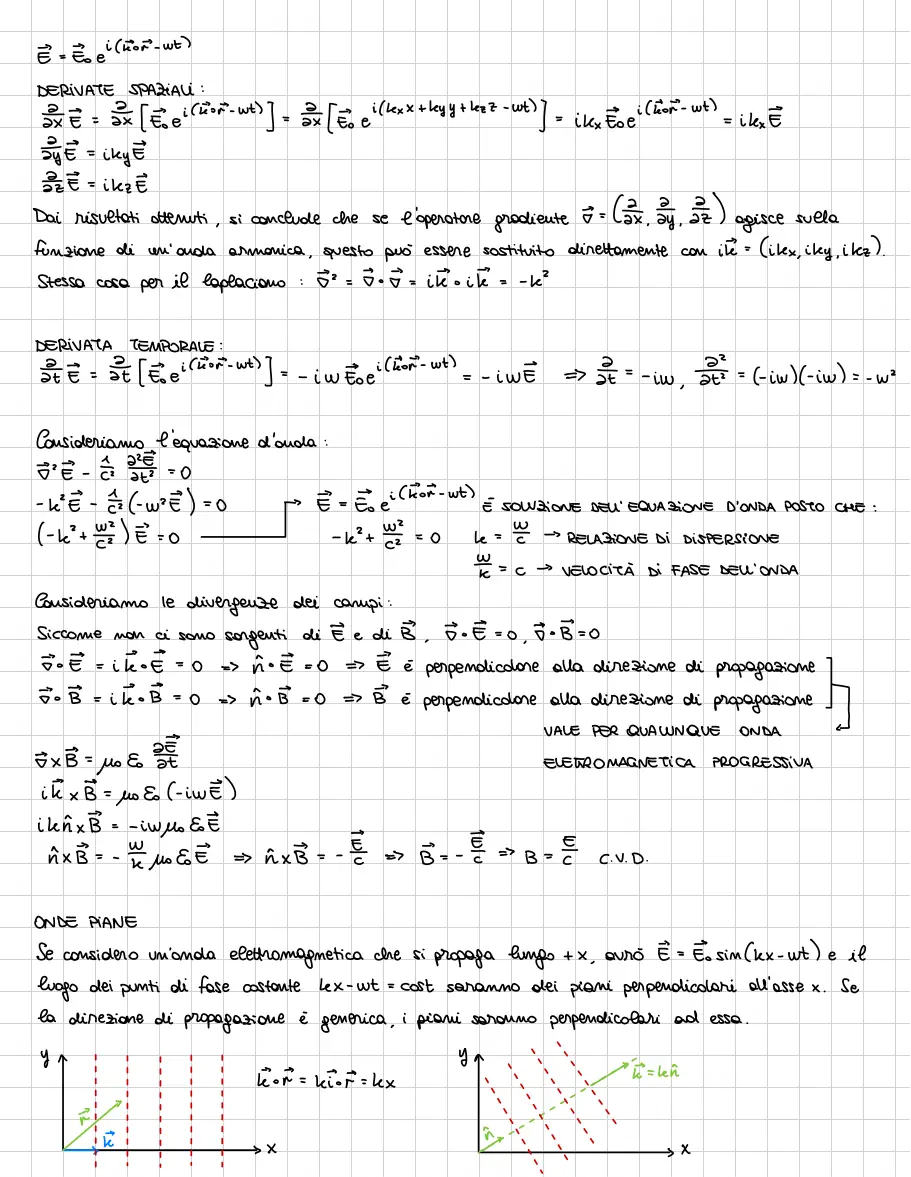 E⃗ = E⃗₀ e^{i(k⃗∘r⃗-wt)}
DERIVATE SPAZIALI:
∂/∂x E⃗ = ∂/∂x [E⃗₀ e^{i(k⃗∘r⃗-wt)}] = ∂/∂x [E⃗₀ e^{i(kx x + ky y + kz z - wt)}] = ikx E⃗₀ e^{i(k⃗∘r⃗-wt)} = ikx E⃗
∂/∂y E⃗ = iky E⃗
∂/∂z E⃗ = ikz E⃗
Dai risultati ottenuti, si conclude che se l'operatore gradiente ∇⃗ = (∂/∂x, ∂/∂y, ∂/∂z) agisce sulla
funzione di un'onda armonica, questo può essere sostituito direttamente con ik⃗ = (ikx, iky, ikz).
Stessa cosa per il laplaciano : ∇⃗² = ∇⃗∘∇⃗ = ik⃗∘ik⃗ = -k²
DERIVATA TEMPORALE:
∂/∂t E⃗ = ∂/∂t [E⃗₀ e^{i(k⃗∘r⃗-wt)}] = -iw E⃗₀ e^{i(k⃗∘r⃗-wt)} = -iwE⃗ ⇒ ∂/∂t = -iw, ∂²/∂t² = (-iw)(-iw) = -w²
Consideriamo l'equazione d'onda :
∇⃗²E⃗ - 1/c² ∂²E⃗/∂t² = 0
-k²E⃗ - 1/c² (-w²E⃗) = 0 → E⃗ = E⃗₀ e^{i(k⃗∘r⃗-wt)} È SOLUZIONE DELL'EQUAZIONE D'ONDA POSTO CHE :
(-k² + w²/c²) E⃗ = 0 -k² + w²/c² = 0 k = w/c → RELAZIONE DI DISPERSIONE
w/k = c → VELOCITÀ DI FASE DELL'ONDA
Consideriamo le divergenze dei campi:
Siccome non ci sono sorgenti di E⃗ e di B⃗, ∇⃗∘E⃗ = 0, ∇⃗∘B⃗ = 0
∇⃗∘E⃗ = ik⃗∘E⃗ = 0 ⇒ n̂∘E⃗ = 0 ⇒ E⃗ è perpendicolare alla direzione di propagazione
∇⃗∘B⃗ = ik⃗∘B⃗ = 0 ⇒ n̂∘B⃗ = 0 ⇒ B⃗ è perpendicolare alla direzione di propagazione
VALE PER QUALUNQUE ONDA
ELETTROMAGNETICA PROGRESSIVA
∇⃗×B⃗ = μ₀ε₀ ∂E⃗/∂t
ik⃗×B⃗ = μ₀ε₀(-iwE⃗)
ikn̂×B⃗ = -iwμ₀ε₀E⃗
n̂×B⃗ = -w/k μ₀ε₀E⃗ ⇒ n̂×B⃗ = -E⃗/c ⇒ B⃗ = -E⃗/c ⇒ B = E/c C.V.D.
ONDE PIANE
Se considero un'onda elettromagnetica che si propaga lungo +x, avrò E⃗ = E⃗₀ sin(kx-wt) e il
luogo dei punti di fase costante kx-wt = cost saranno dei piani perpendicolari all'asse x. Se
la direzione di propagazione è generica, i piani saranno perpendicolari ad essa.
y r⃗ k⃗ x
k⃗∘r⃗ = ki⃗∘r⃗ = kx
y n̂ k⃗ = kn̂ x